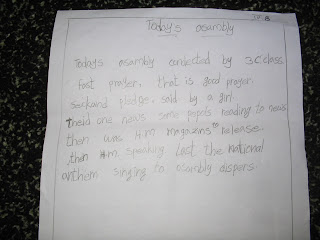 Today's asambly
Todays asambly conducted by 3C class.
fast prayer, that is good prayer.
Serkoind pledge, said by a girl.
theid one news some pepols reading to news
then was H.M magazins to release
then H.M speaking. Last the national
anthem singing to asambly dispers.